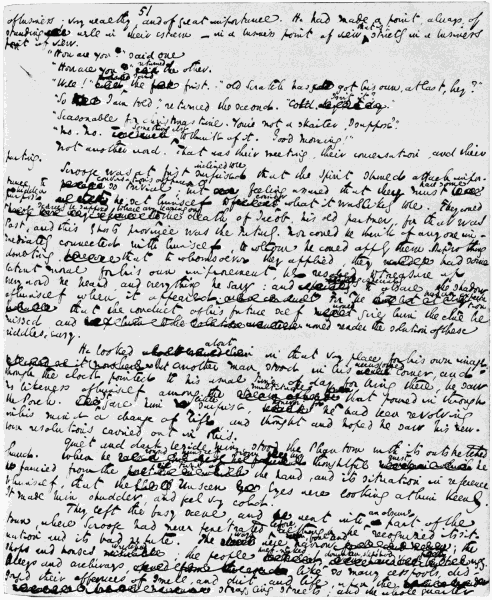 51
of business: very wealthy, and of great importance. He had made a point, always, of
standing well in their esteem – in a business point of view, that is; strictly in a business
point of view.
"How are you?" said one.
"How are you?" returned the other.
"Well!" said the first. "Old Scratch has got his own, at last, hey?"
"So I am told," returned the second. "Cold, isn't it?"
"Seasonable for Christmas time. You're not a skaiter, I suppose?"
"No. No. Something else to think of. Good morning!"
Not another word. That was their meeting, their conversation, and their
parting.
Scrooge was at first inclined to be surprised that the Spirit should attach impor-
tance to conversations apparently so trivial; but feeling assured that they must have some
hidden purpose, he set himself to consider what it was likely to be. They could
scarcely be supposed to have any bearing on the death of Jacob, his old partner, for that was
Past, and this Ghost's province was the Future. Nor could he think of any one im-
mediately connected with himself to whom he could apply them. But nothing
doubting that to whomsoever they applied they had some
latent moral for his own improvement, he resolved to treasure up
every word he heard, and everything he saw; and especially to observe the shadow
of himself when it appeared. For he had an expectation
that the conduct of his future self would give him the clue he
missed, and would render the solution of these
riddles, easy.
He looked about in that very place for his own image;
but another man stood in his accustomed corner, and
though the clock pointed to his usual time of day for being there, he saw
no likeness of himself among the multitudes that poured in through
the Porch. It gave him little surprise, however; for he had been revolving
in his mind a change of life, and thought and hoped he saw his new-
born resolutions carried out in this.
Quiet and dark, beside him, stood the Phantom, with its outstretched
hand. When he roused himself from his thoughtful quest,
he fancied from the turn of the hand, and its situation in reference
to himself, that the Unseen Eyes were looking at him keenly.
It made him shudder, and feel very cold.
They left the busy scene, and went into an obscure part of the
town, where Scrooge had never penetrated before, although he recognised its sit-
uation and its bad repute. The ways were foul and narrow; the
shops and houses wretched; the people half-naked, drunken, slipshod, ugly.
Alleys and archways, like so many cesspools, dis-
gorged their offences of smell, and dirt, and life, upon the
straggling streets; and the whole quarter